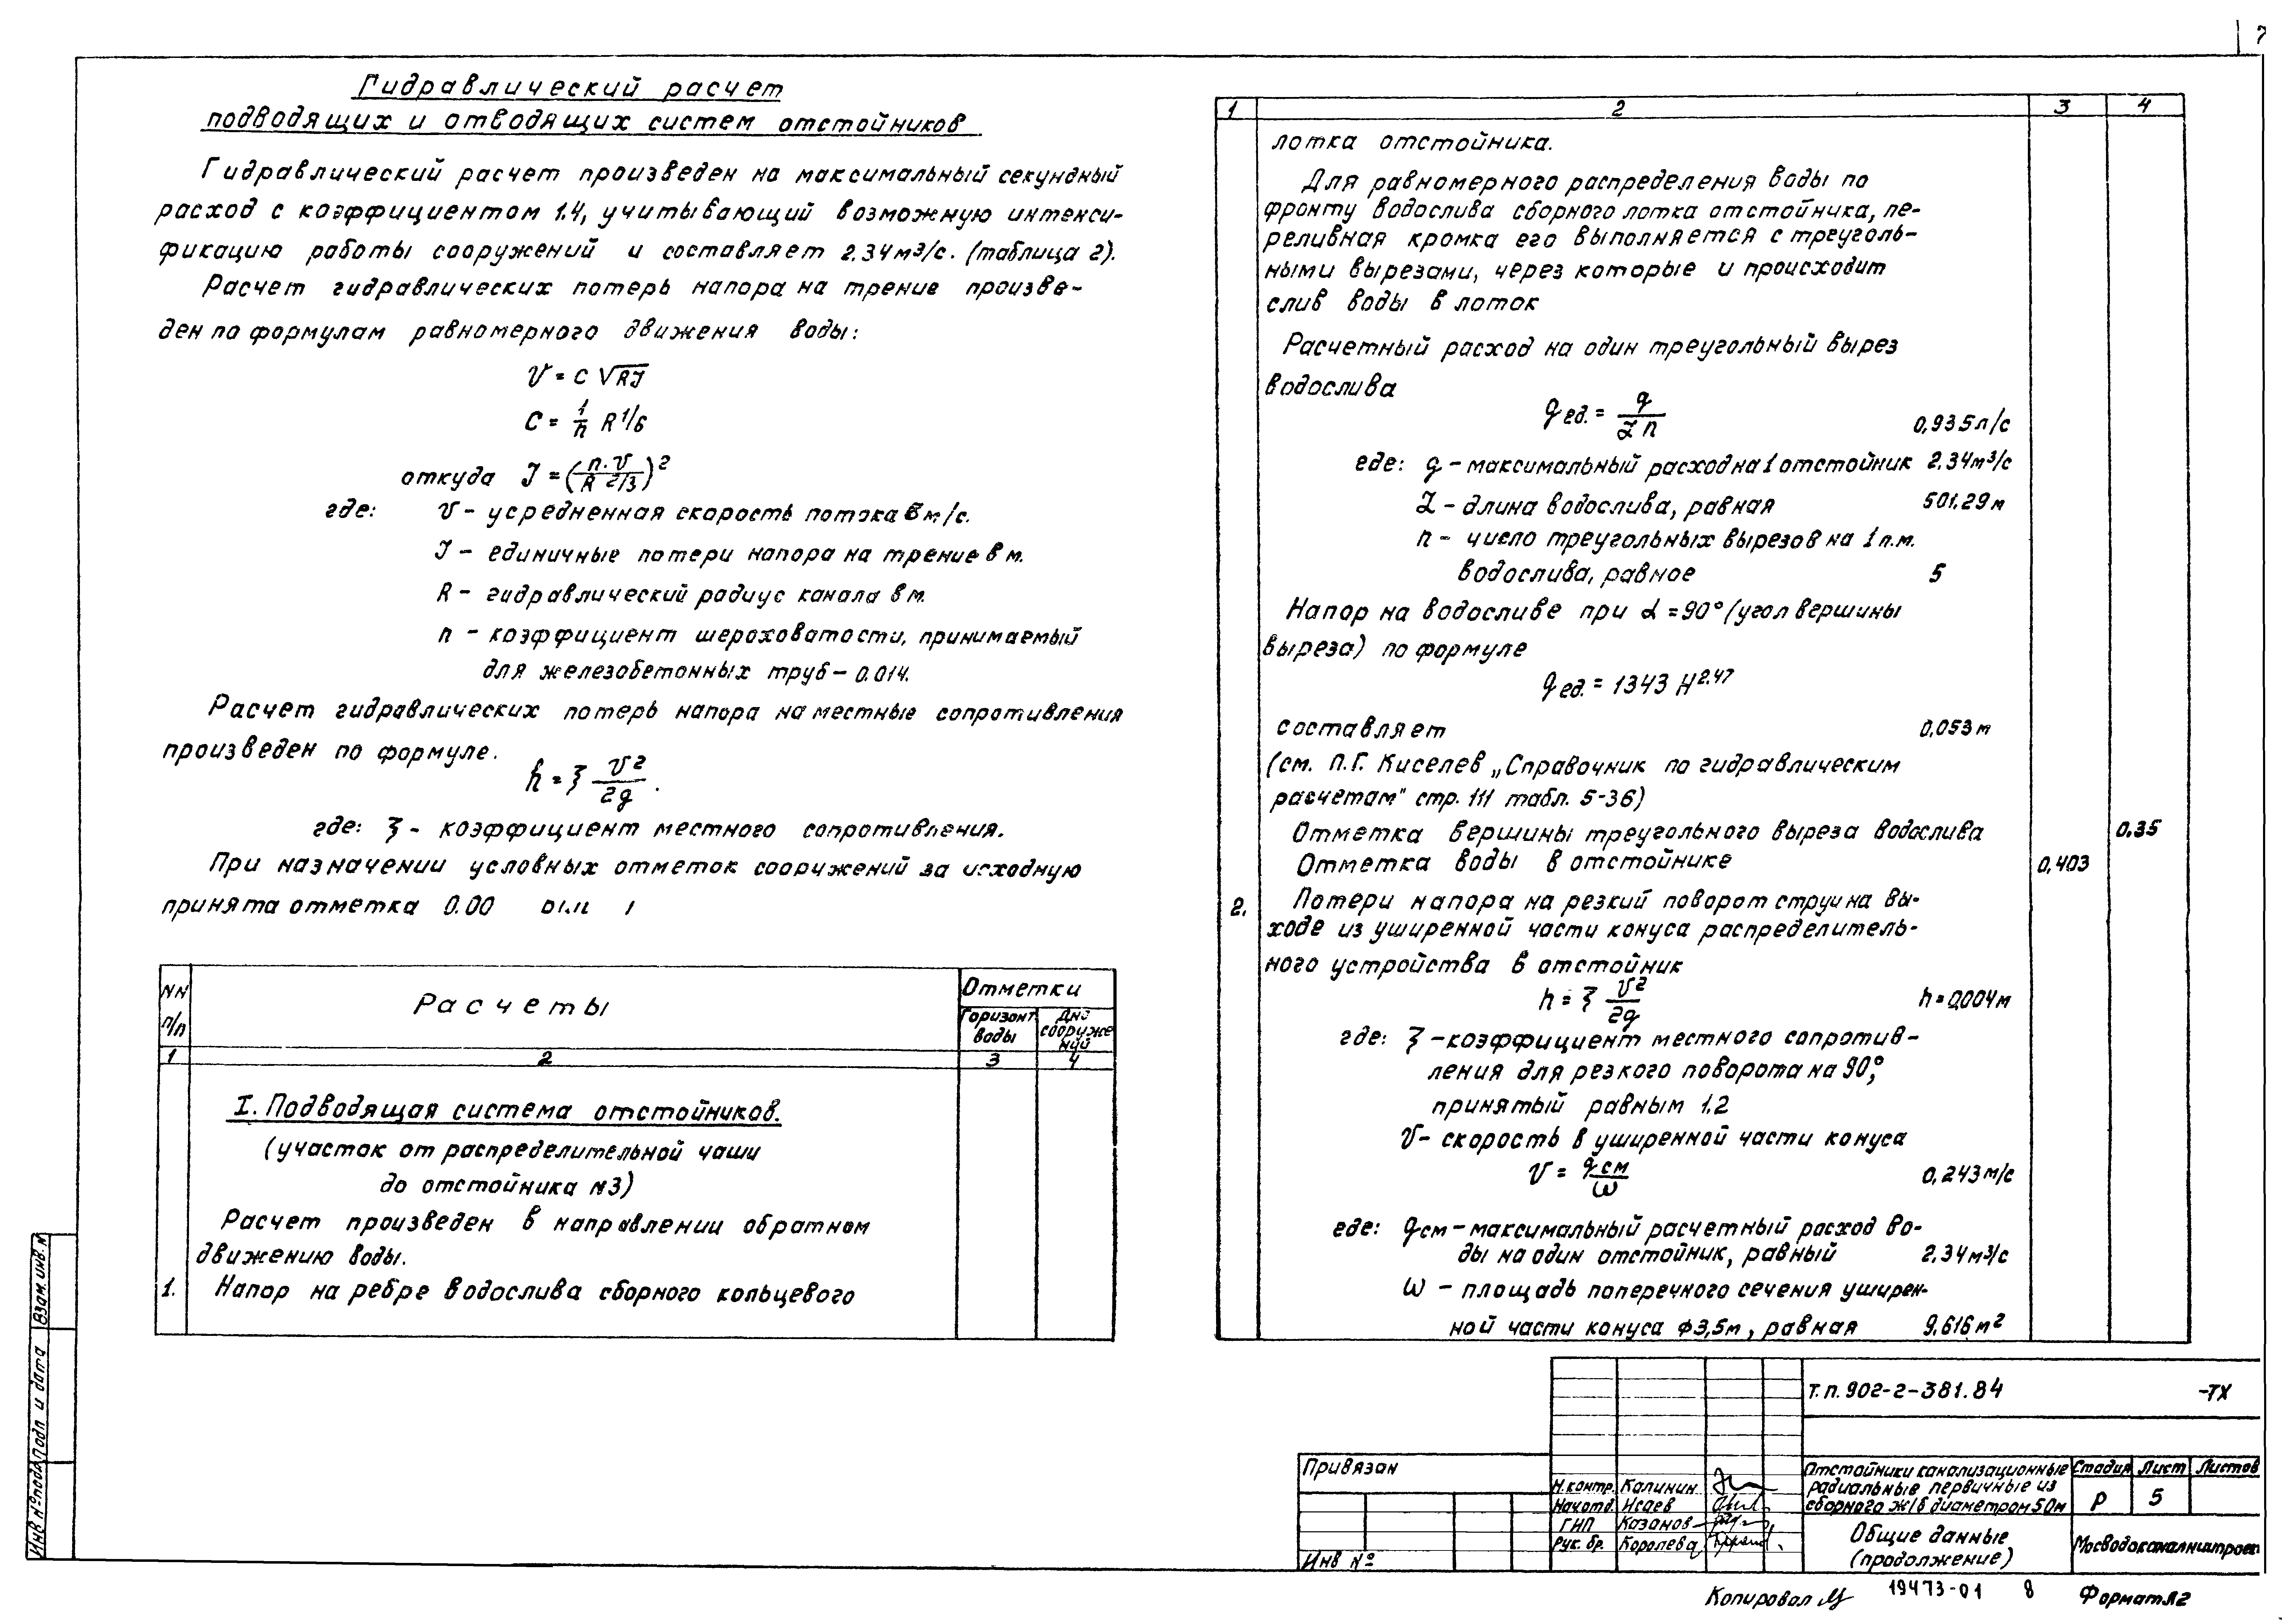 7
Гидравлический расчет
подводящих и отводящих систем отстойников
Гидравлический расчет произведен на максимальный секундный
расход с коэффициентом 1.4, учитывающий возможную интенси-
фикацию работы сооружений и составляет 2.34 м³/с. (таблица 2).
Расчет гидравлических потерь напора на трение произве-
ден по формулам равномерного движения воды:
V = C √RJ
C = 1/n R 1/6
откуда J = (n.V / R 2/3)²
где: V - усредненная скорость потока в м/с.
J - единичные потери напора на трение в м.
R - гидравлический радиус канала в м.
n - коэффициент шероховатости, принимаемый
для железобетонных труб - 0.014.
Расчет гидравлических потерь напора на местные сопротивления
произведен по формуле.
h = ξ V²/2g .
где: ξ - коэффициент местного сопротивления.
При назначении условных отметок сооружений за исходную
принята отметка 0.00
NN п/п
Расчеты
Отметки
Горизонт воды
Дна сооруже ний
1 2 3 4
I. Подводящая система отстойников.
(участок от распределительной чаши
до отстойника N3)
Расчет произведен в направлении обратном
движению воды.
1. Напор на ребре водослива сборного кольцевого
1 2 3 4
лотка отстойника.
Для равномерного распределения воды по
фронту водослива сборного лотка отстойника, пе-
реливная кромка его выполняется с треуголь-
ными вырезами, через которые и происходит
слив воды в лоток
Расчетный расход на один треугольный вырез
водослива
q ед. = q / L n 0,935 л/с
где: q - максимальный расход на 1 отстойник 2.34 м³/с
L - длина водослива, равная 501.29 м
n - число треугольных вырезов на 1 п.м.
водослива, равное 5
Напор на водосливе при α = 90° (угол вершины
выреза) по формуле
q ед. = 1343 H 2.47
составляет 0,053 м
(см. П.Г. Киселев „Справочник по гидравлическим
расчетам" стр. 111 табл. 5-36)
Отметка вершины треугольного выреза водослива 0.35
Отметка воды в отстойнике 0,403
2. Потери напора на резкий поворот струи на вы-
ходе из уширенной части конуса распределитель-
ного устройства в отстойник
h = ξ V²/2g h = 0,004 м
где: ξ - коэффициент местного сопротив-
ления для резкого поворота на 90°,
принятый равным 1.2
V - скорость в уширенной части конуса
V = q см / ω 0,243 м/с
где: q см - максимальный расчетный расход во-
ды на один отстойник, равный 2.34 м³/с
ω - площадь поперечного сечения уширен-
ной части конуса ф3,5м, равная 9.616 м²
Взам. инв. N
Подп и дата
Инв № подл
Т.п. 902-2-381.84 -ТХ
Привязан
Инв №
Н.контр. Калинин
Нач.отд. Исаев
ГИП Казанов
Рук. бр. Королева
Отстойники канализационные
радиальные первичные из
сборного ж/б диаметром 50м
Стадия Лист Листов
Р 5
Общие данные
(продолжение)
Мосводоканалниипроект
Копировал 19473-01 8 Формат А2